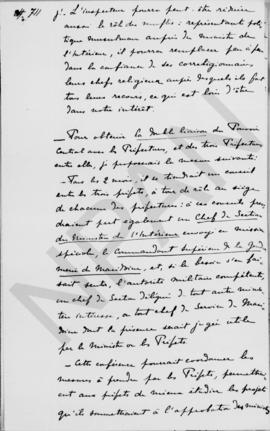 711
j'. L'inspecteur pourra peut-être réduire
aussi le rôle du muphti: représentant poli-
tique musulman auprès du ministre de
l'Intérieur, il pourra remplacer peu à peu
dans la confiance de ses coreligionnaires
leurs chefs religieux auprès desquels ils font
tous leurs recours, ce qui est loin d'être
dans notre intérêt.
Pour obtenir la double liaison du Pouvoir
Central avec les Préfectures, et des trois Préfectures
entre elles, je proposerais la mesure suivante:
Tous les 2 mois, il se tiendrait un conseil
entre les trois préfets, à tour de rôle au siège
de chacune des préfectures: à ces conseils pren-
draient part également un Chef de Section
du Ministère de l'Intérieur envoyé en mission
spéciale, le Commandant Supérieur de la Gendar-
merie de Macédoine, et, si le besoin s'en fai-
sait sentir, l'autorité militaire compétente,
un chef de Section délégué de tout autre minis-
tère intéressé, et tout chef de Service de Macé-
doine dont la présence serait jugée utile
par le ministre ou les Préfets.
Cette conférence pourrait coordonner les
mesures à prendre par les Préfets, permettre
aux préfets de mieux étudier les projets
qu'ils soumettraient à l'approbation des ministres